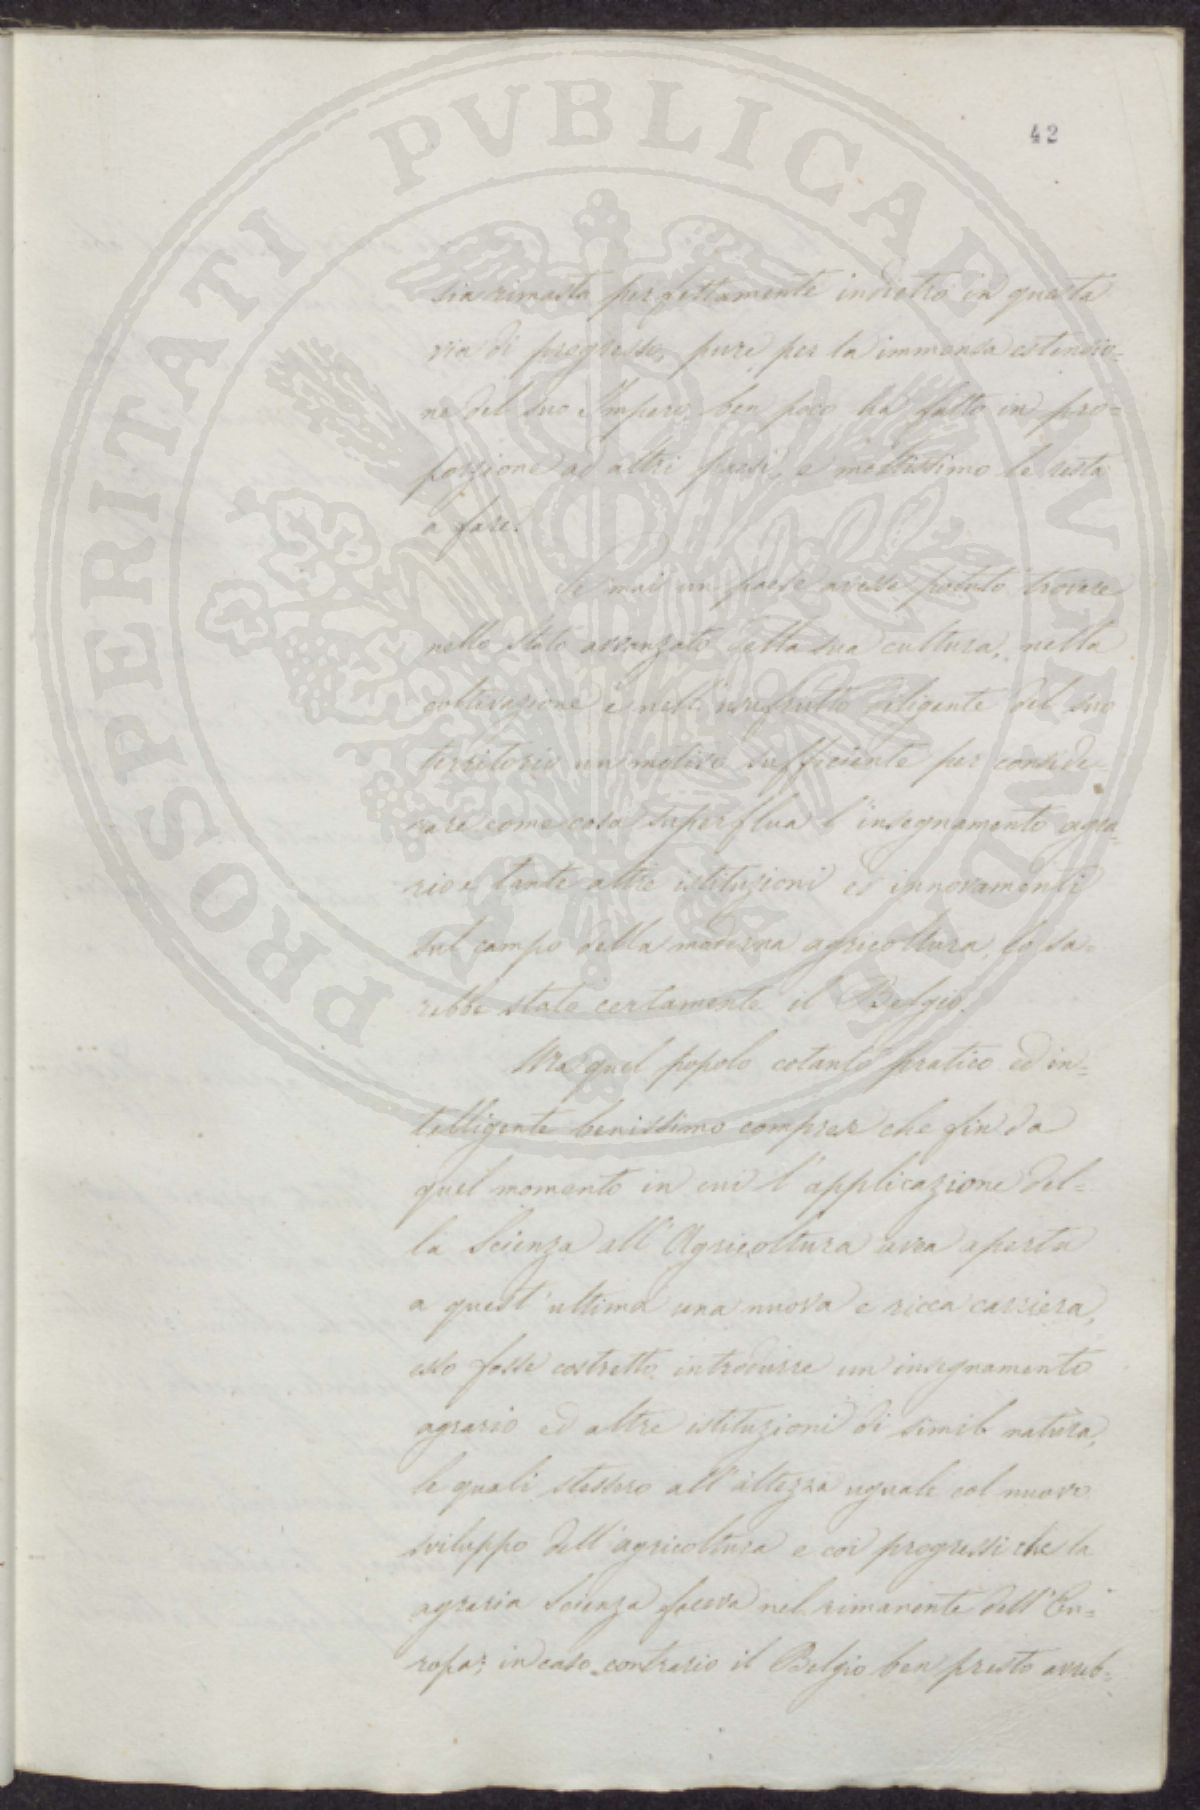 42
sia rimasta perfettamente indietro in questa
via di progresso, pure per la immensa estensio=
ne del suo Impero ben poco ha fatto in pro=
porzione ad altri paesi, e moltissimo le resta
a fare.
Se mai un paese avesse potuto trovare
nello stato avvanzato della sua cultura, nella
coltivazione e nell'usufrutto diligente del suo
territorio un motivo sufficiente per conside=
rare come cosa superflua l'insegnamento agra=
rio e tante altre istituzioni ed innovamenti
sul campo della moderna agricoltura, lo sa=
rebbe stato certamente il Belgio.
Ma quel popolo cotanto pratico ed in=
telligente benissimo comprese che fin da
quel momento in cui l'applicazione del=
la Scienza all'Agricoltura avea aperta
a quest'ultima una nuova e ricca carriera,
esso fosse costretto introdurre un insegnamento
agrario ed altre istituzioni di simil natura,
le quali stessero all'altezza uguale col nuovo
sviluppo dell'agricoltura e coi progressi che la
agraria Scienza faceva nel rimanente dell'Eu=
ropa; in caso contrario il Belgio ben presto avreb=
PROSPERITATI PVBLICAE AVGENDAE